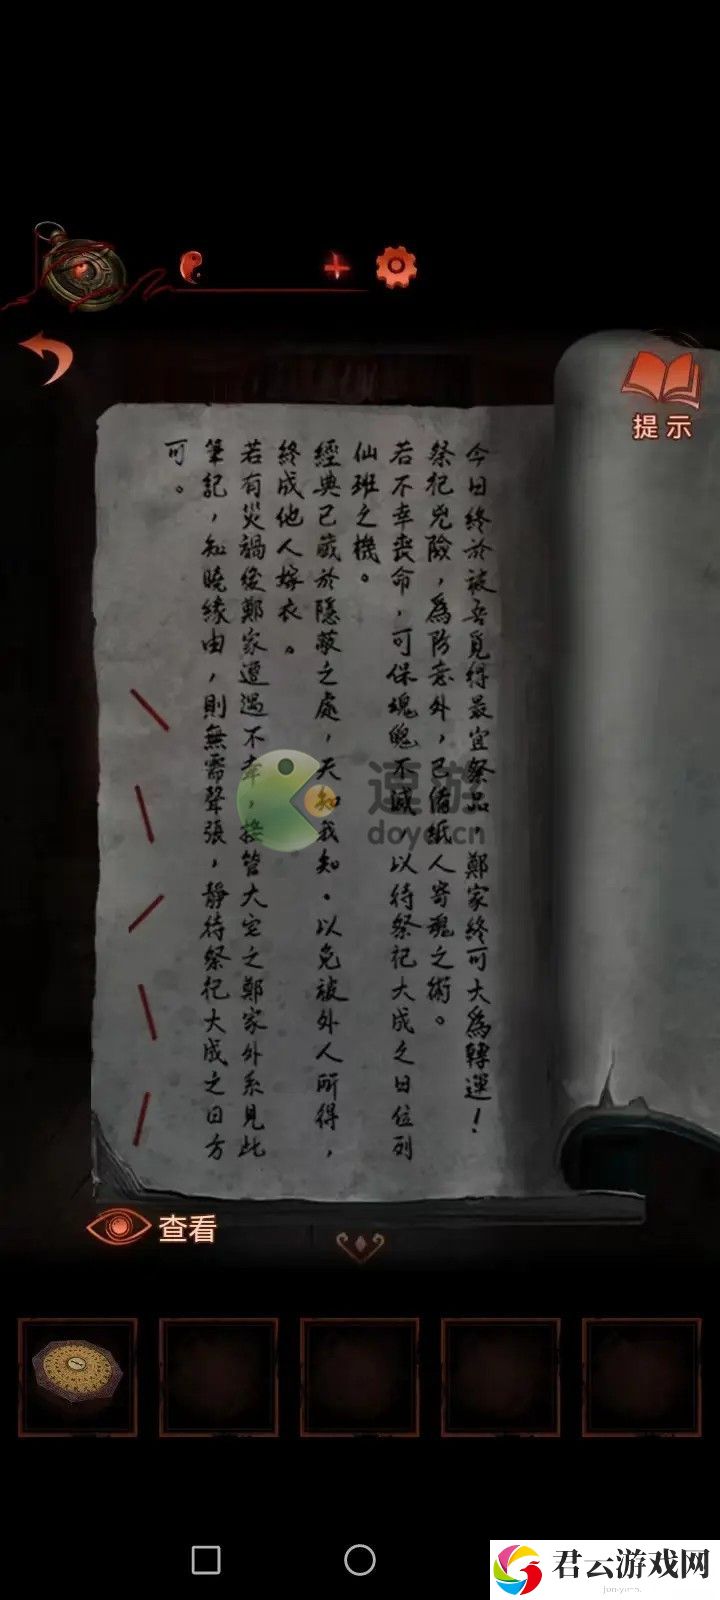 提示
今日終於被吾覓得最宜祭品，鄭家終可大為轉運！
祭祀兇險，為防意外，已備紙人寄魂之術。
若不幸喪命，可保魂魄不滅，以待祭祀大成之日位列
仙班之機。
經典已藏於隱蔽之處，天知我知。以免被外人所得，
終成他人嫁衣。
若有災禍後鄭家遭遇不幸，接管大宅之鄭家外系見此
筆記，知曉緣由，則無需聲張，靜待祭祀大成之日方
可。
逗游
doyo.cn
查看
君云游戏网